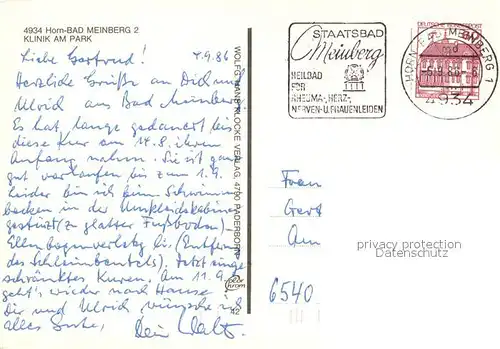 4934 Horn-BAD MEINBERG 2
KLINIK AM PARK
4.9.86
Liebe Gertrud!
Herzliche Grüße an Dich und
Ulrich aus Bad Meinberg.
Es hat lange gedauert bis
diese Kur am 14.8. ihren
Anfang nahm. Sie ist ganz
gut verlaufen bis zum 1.9.
Leider bin ich beim Schwimm
becken in der Umkleidekabine
gestürzt (zu glatter Fußboden) -
Ellenbogenverletzg li: (Entfern
des Schleimbeutels). Jetzt einge
schränktes Kuren. Am 11.9.
geht's wieder nach Hause
Dir und Ulrich wünsche ich
alles Gute,
Dein
WOLFGANG KLOCKE VERLAG, 4790 PADERBORN
42
STAATSBAD
Meinberg
HEILBAD
FÜR
RHEUMA-, HERZ-,
NERVEN-U.FRAUENLEIDEN
DEUTSCHE BUNDESPOST
HORN-BAD MEINBERG 1
4934
Frau
Am
6540
privacy protection
Datenschutz